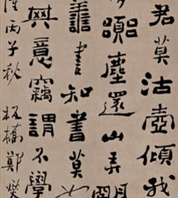 君莫沽壺傾我
塵還山弄明
書知書莫
意竊謂不學
隆丙子秋 板橋鄭燮